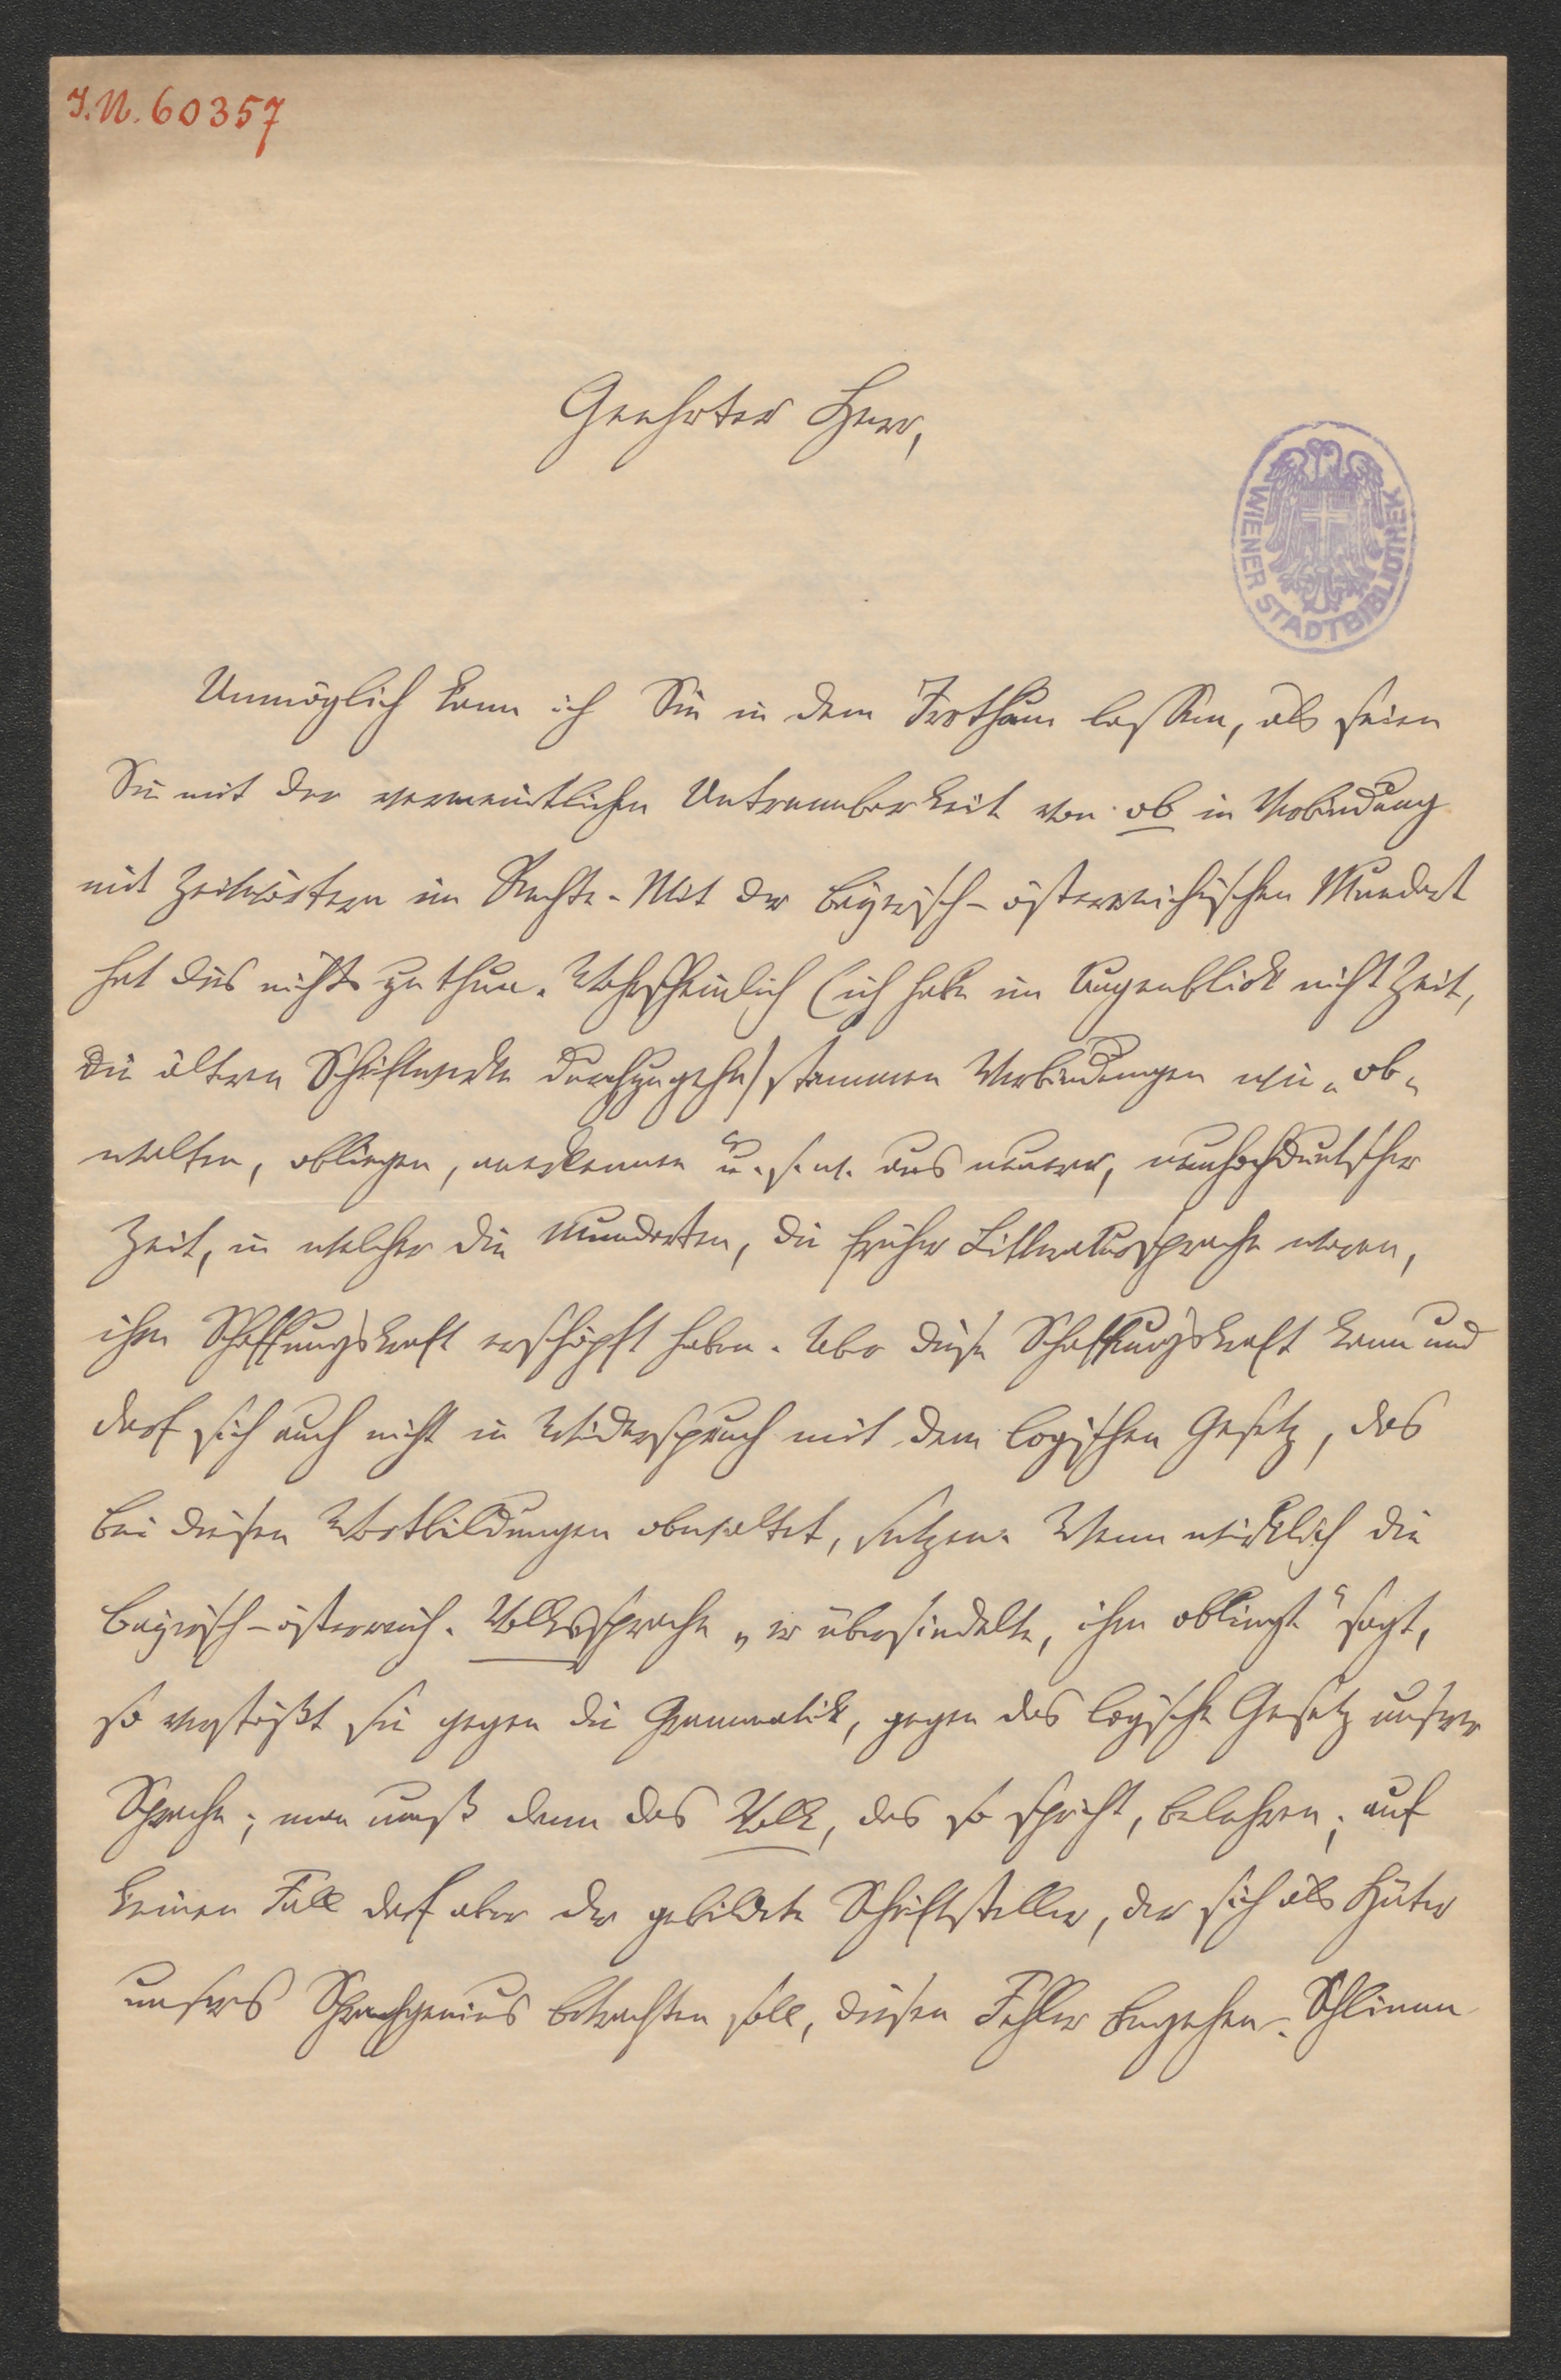 I.N. 60357
Geehrter Herr,
WIENER STADTBIBLIOTHEK
Unmöglich kann ich Sie in dem Irrthum lassen, als seien
Sie mit der vermeintlichen Untrennbarkeit von ob in Verbindung
mit Zeitwörtern im Rechte. Mit der bayrisch-österreichischen Mundart
hat dies nichts zu thun. Wahrscheinlich (ich habe im Augenblick nicht Zeit,
die ältern Schriftwerke durchzugehn) stammen Verbindungen wie „ob-
walten, obliegen, anerkennen“ u. s. w. aus neuerer, neuhochdeutscher
Zeit, in welcher die Mundarten, die früher Litteratursprache waren,
ihre Schaffungskraft erschöpft haben. Aber diese Schaffungskraft kann und
darf sich auch nicht in Widerspruch mit dem logischen Gesetz, das
bei diesen Wortbildungen obwaltet, setzen. Wenn wirklich die
bayrisch-österreich. Volkssprache „er übersiedelte, ihm obliegt“ sagt,
so verstößt sie gegen die Grammatik, gegen das logische Gesetz unsrer
Sprache; man muß dann das Volk, das so spricht, belehren; auf
keinen Fall darf aber der gebildete Schriftsteller, der sich als Hüter
unsers Sprachgenius betrachten soll, diesen Fehler begehen. Schlimm